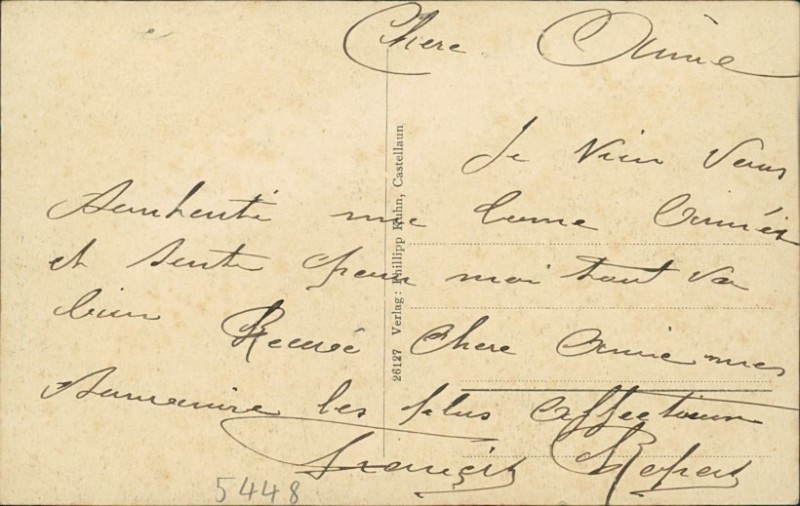 Chere Amie
Je vien vous
Souhenté une bonne Année
et Senté pour moi tout va
bien Recevé Chere Amie mes
Souvenire les plus affectueux
François Robert
5448
26127 Verlag: Phillipp Kuhn, Castellaun